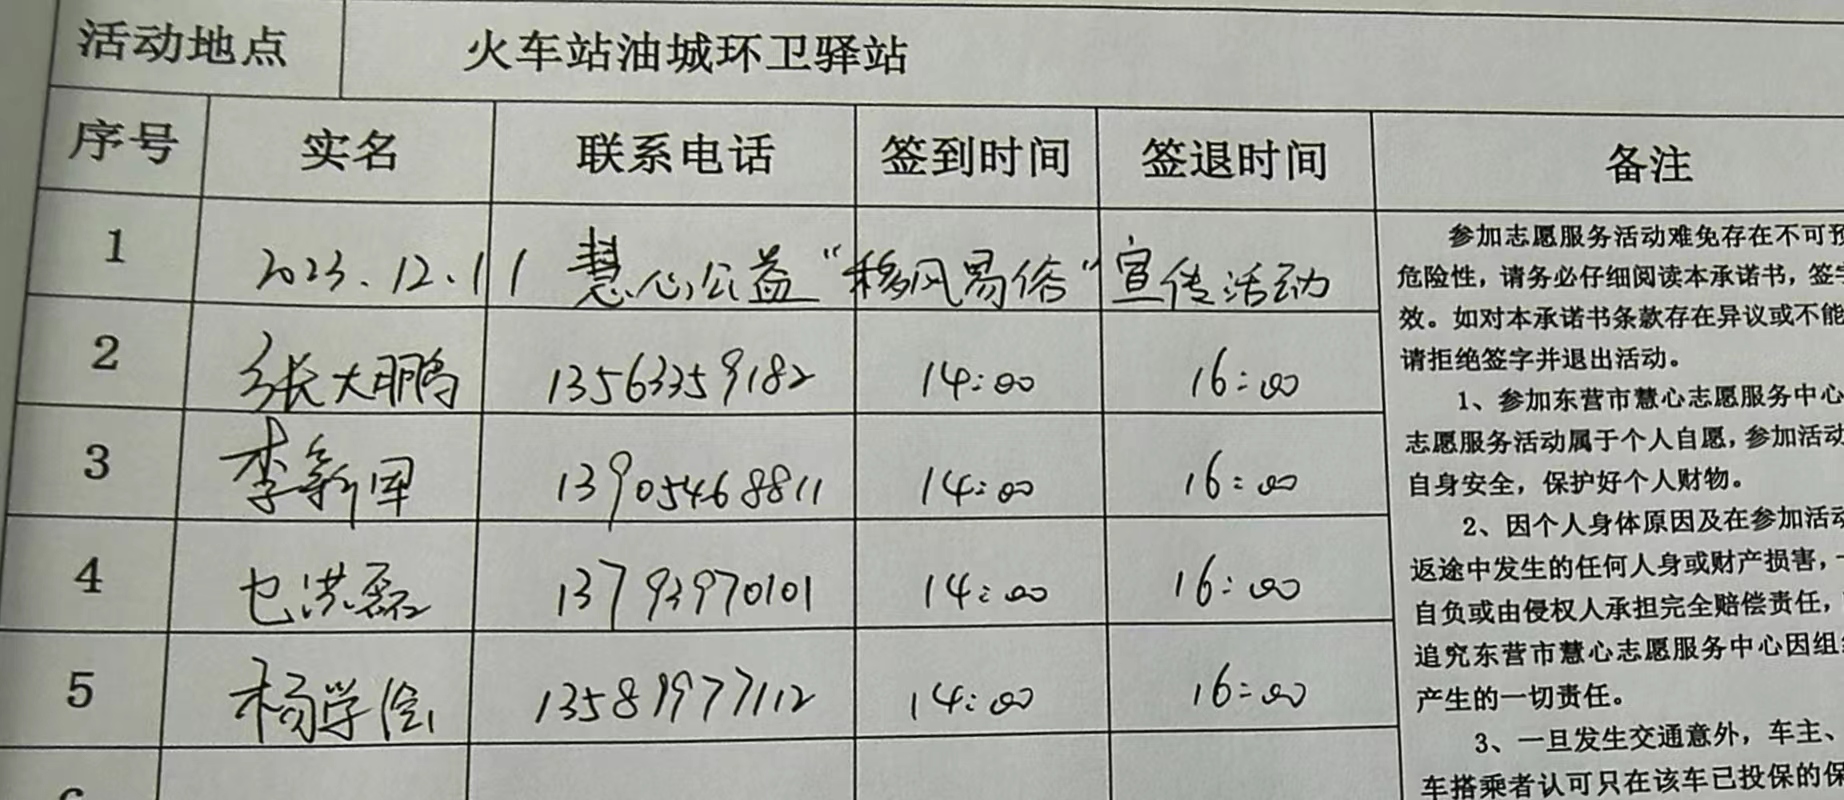 活动地点 火车站油城环卫驿站
序号 实名 联系电话 签到时间 签退时间 备注
1 2023.12.11 慧心公益“移风易俗”宣传活动
2 张大鹏 13563359182 14:00 16:00
3 李新军 13905468811 14:00 16:00
4 也洪磊 13793970101 14:00 16:00
5 杨学涂 13589977112 14:00 16:00
参加志愿服务活动难免存在不可预
危险性，请务必仔细阅读本承诺书，签字
效。如对本承诺书条款存在异议或不能
请拒绝签字并退出活动。
1、参加东营市慧心志愿服务中心
志愿服务活动属于个人自愿，参加活动
自身安全，保护好个人财物。
2、因个人身体原因及在参加活动
返途中发生的任何人身或财产损害，
自负或由侵权人承担完全赔偿责任，
追究东营市慧心志愿服务中心因组织
产生的一切责任。
3、一旦发生交通意外，车主、
车搭乘者认可只在该车已投保的保